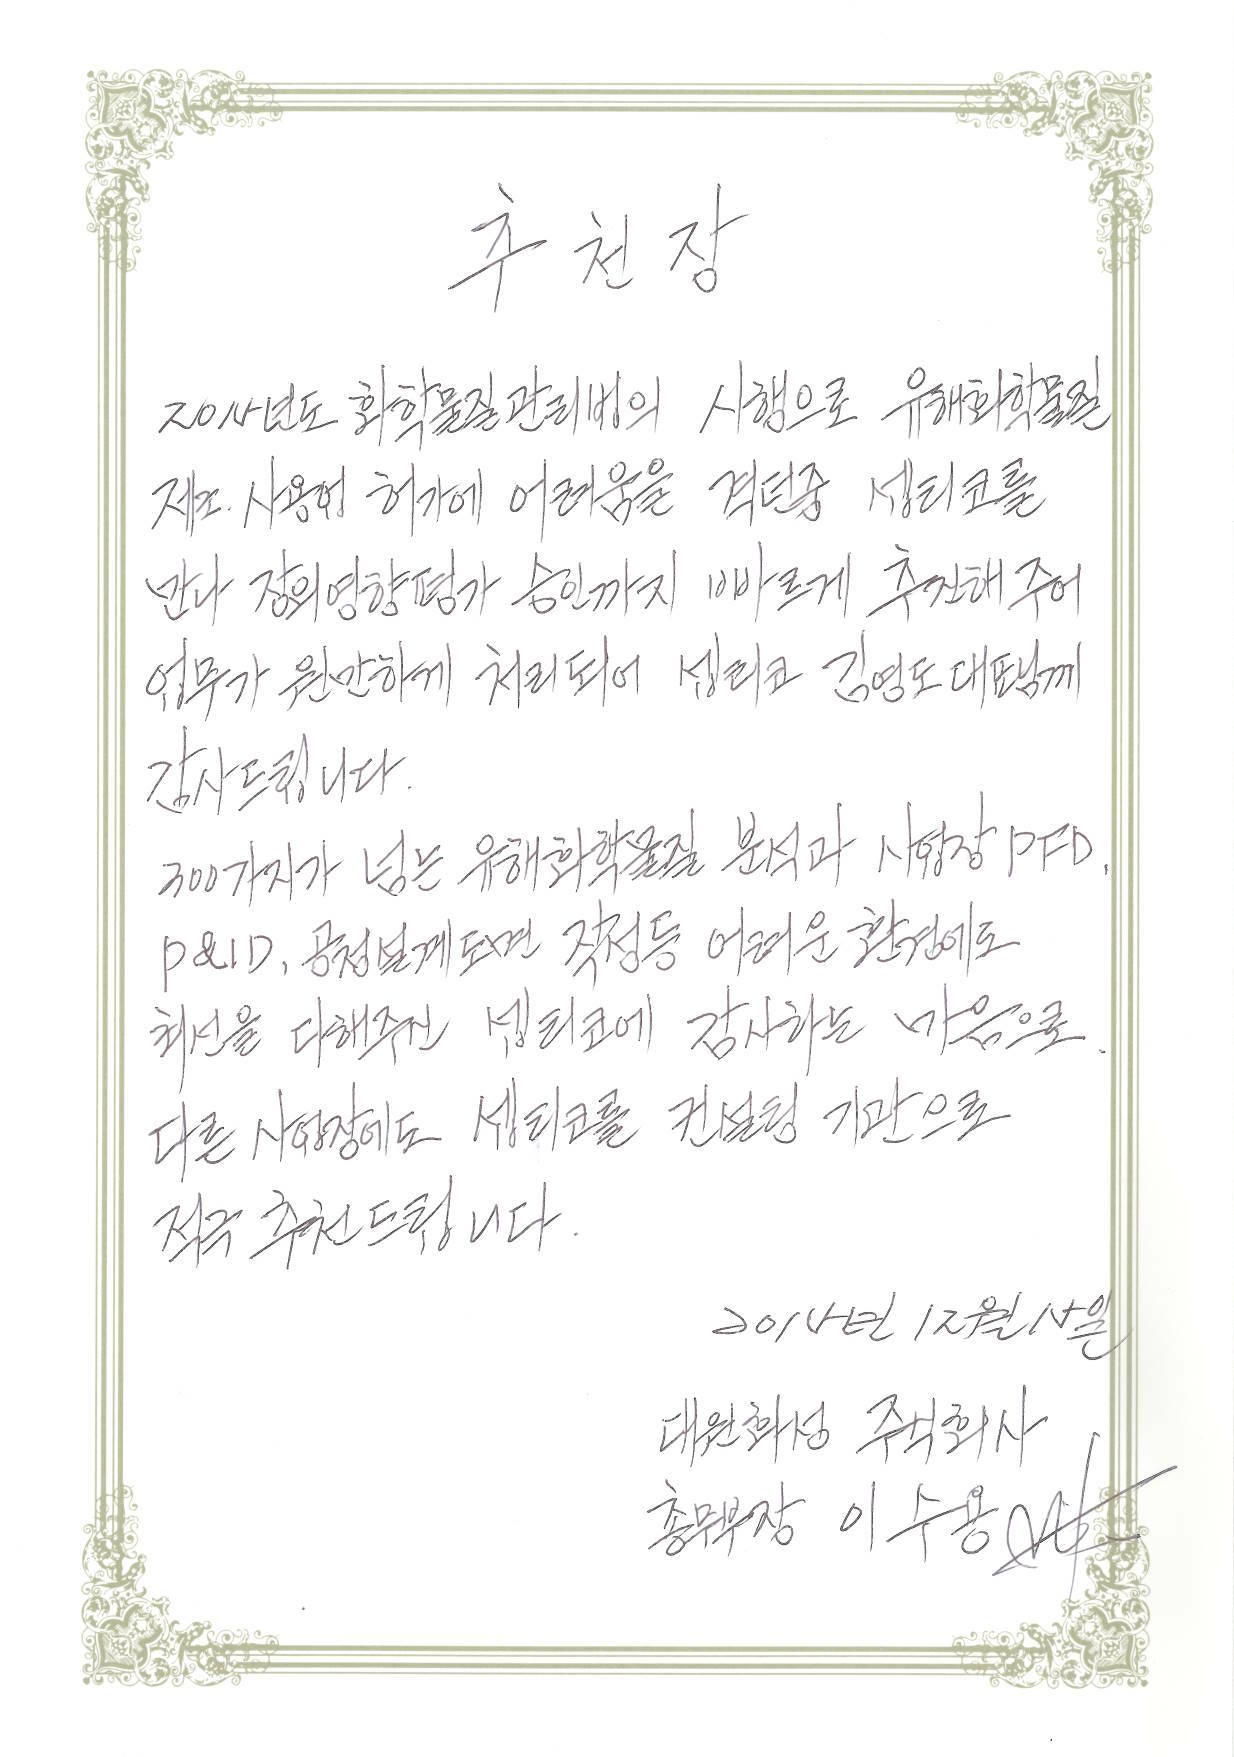 추천장
2014년도 화학물질관리법의 시행으로 유해화학물질
제조.사용업 허가에 어려움을 격던중 셉티코를
만나 장외영향평가 승인까지 빠르게 추진해 주어
업무가 원만하게 처리되어 셉티코 김영도 대표님께
감사드립니다.
300가지가 넘는 유해화학물질 분석과 사업장 PFD,
P&ID, 공정설계도면 작성등 어려운 환경에도
최선을 다해주신 셉티코에 감사하는 마음으로.
다른 사업장에도 셉티코를 컨설팅 기관으로
적극 추천드립니다.
2014년 12월 14일
대원화성 주식회사
총무부장 이수용